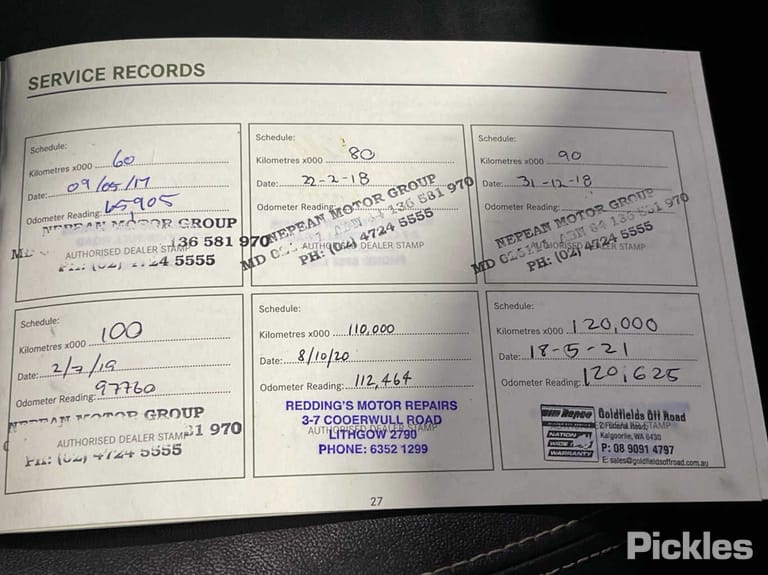 SERVICE RECORDS
Schedule:
Kilometres x000 60
Date: 09/05/17
Odometer Reading: 65905
NEPEAN MOTOR GROUP
MD 136 581 970
AUTHORISED DEALER STAMP
PH: (02) 4724 5555
Schedule:
Kilometres x000 80
Date: 22-2-18
Odometer Reading:
NEPEAN MOTOR GROUP
MD 136 581 970
AUTHORISED DEALER STAMP
PH: (02) 4724 5555
Schedule:
Kilometres x000 90
Date: 31-12-18
Odometer Reading:
NEPEAN MOTOR GROUP
MD ABN 64 136 581 970
AUTHORISED DEALER STAMP
PH: (02) 4724 5555
Schedule:
Kilometres x000 100
Date: 2/7/19
Odometer Reading: 97760
NEPEAN MOTOR GROUP
81 970
AUTHORISED DEALER STAMP
PH: (02) 4724 5555
Schedule:
Kilometres x000 110,000
Date: 8/10/20
Odometer Reading: 112,464
REDDING'S MOTOR REPAIRS
3-7 COOERWULL ROAD
AUTHORISED DEALER STAMP
LITHGOW 2790
PHONE: 6352 1299
Schedule:
Kilometres x000 120,000
Date: 18-5-21
Odometer Reading: 120,625
Repco
NATION
WIDE
WARRANTY
Goldfields Off Road
STAMP
Kalgoorlie, WA 6430
P: 08 9091 4797
E: sales@goldfieldsoffroad.com.au
27
Pickles